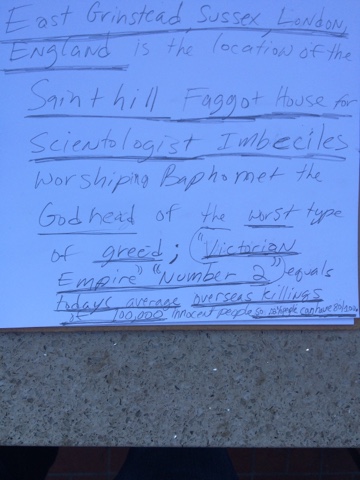 East Grinstead, Sussex, London,
England is the location of the
Saint hill Faggot House for
Scientologist Imbeciles
worshiping Baphomet the
Godhead of the worst type
of greed; ("Victorian
Empire" "Number 2") equals
todays average overseas killings
of 100,000 innocent people so people can have